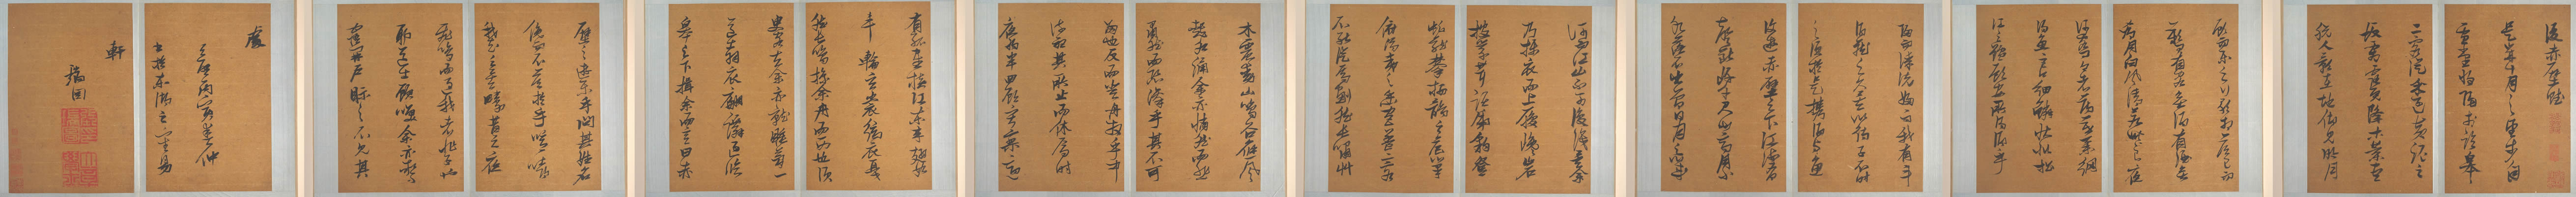 後赤壁賦
是歲十月之望步自
雪堂將歸於臨皋
二客從余過黃泥之
坂霜露既降木葉盡
脫人影在地仰見明月
顧而樂之行歌相答已而
歎曰有客無酒有酒無
肴月白風清如此良夜
何客曰今者薄暮舉網
得魚巨口細鱗狀似松
江之鱸顧安所得酒乎
歸而謀諸婦婦曰我有斗
酒藏之久矣以待子不時
之須於是攜酒與魚
復遊赤壁之下江流有
聲斷岸千尺山高月小
水落石出曾日月之幾
何而江山不可復識矣余
乃攝衣而上履巉岩
披蒙茸踞虎豹登
虬龍攀棲鶻之危巢
俯馮夷之幽宮蓋二客
不能從焉劃然長嘯草
木震動山鳴谷應風
起水涌余亦悄然而悲
肅然而恐凜乎其不可
留也反而登舟放乎中
流聽其所止而休焉時
夜將半四顧寂寥適
有孤鶴橫江東來翅如
車輪玄裳縞衣戛
然長鳴掠余舟而西也須
臾客去余亦就睡夢一
道士羽衣翩躚過臨
皋之下揖余而言曰赤
壁之遊樂乎問其姓名
俛而不答嗚呼噫嘻
我知之矣疇昔之夜
飛鳴而過我者非子也
耶道士顧笑余亦驚
寤開戶視之不見其
處
天啓丙寅仲
書於東湖之
軒
瑞圖